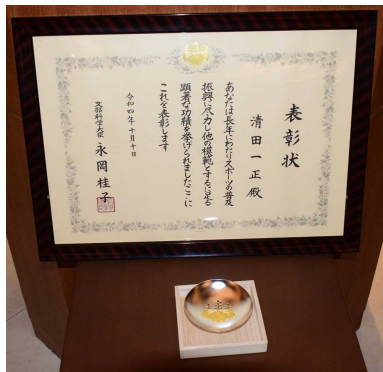 表彰状
清田一正殿
あなたは長年にわたりスポーツの普及
振興に尽力し他の模範とするに足る
顕著な功績を挙げられましたここに
これを表彰します
令和四年十月十日
文部科学大臣 永岡桂子